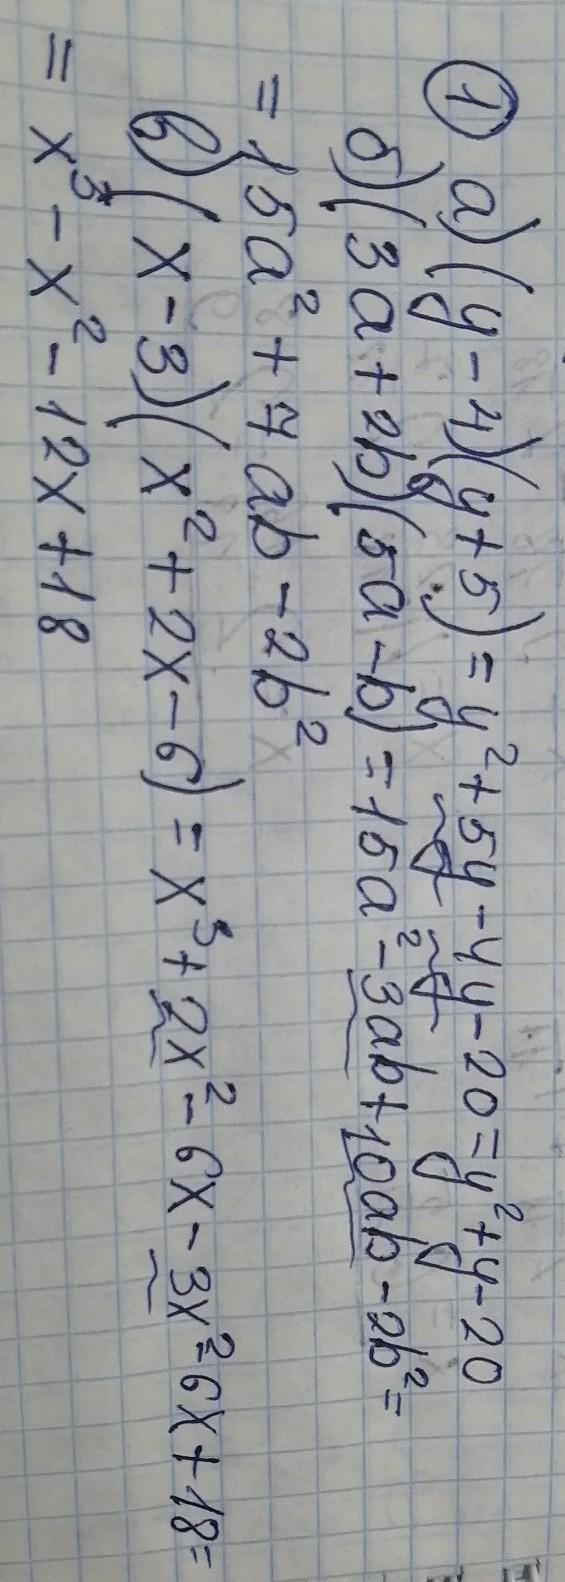 ① а) (y - 4)(y + 5) = y² + 5y - 4y - 20 = y² + y - 20
б) (3a + 2b)(5a - b) = 15a² - 3ab + 10ab - 2b² =
= 15a² + 7ab - 2b²
в) (x - 3)(x² + 2x - 6) = x³ + 2x² - 6x - 3x² - 6x + 18 =
= x³ - x² - 12x + 18